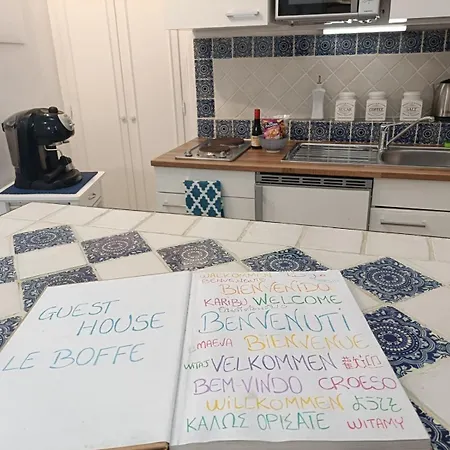 GUEST
HOUSE
LE BOFFE
WILLKOMMEN
BENVENGUTS
BIENVENIDO
KARIBU WELCOME
BENVENUTI
MAEVA BIENVENUE
WITAJ VELKOMMEN 歡迎
BEM-VINDO CROESO
WILLKOMMEN ようこそ
ΚΑΛΩΣ ΟΡΙΣΑΤΕ WITAMY
SUGAR
COFFEE
SALT